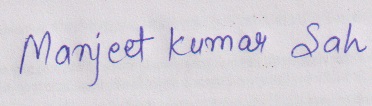 Manjeet kumar Sah